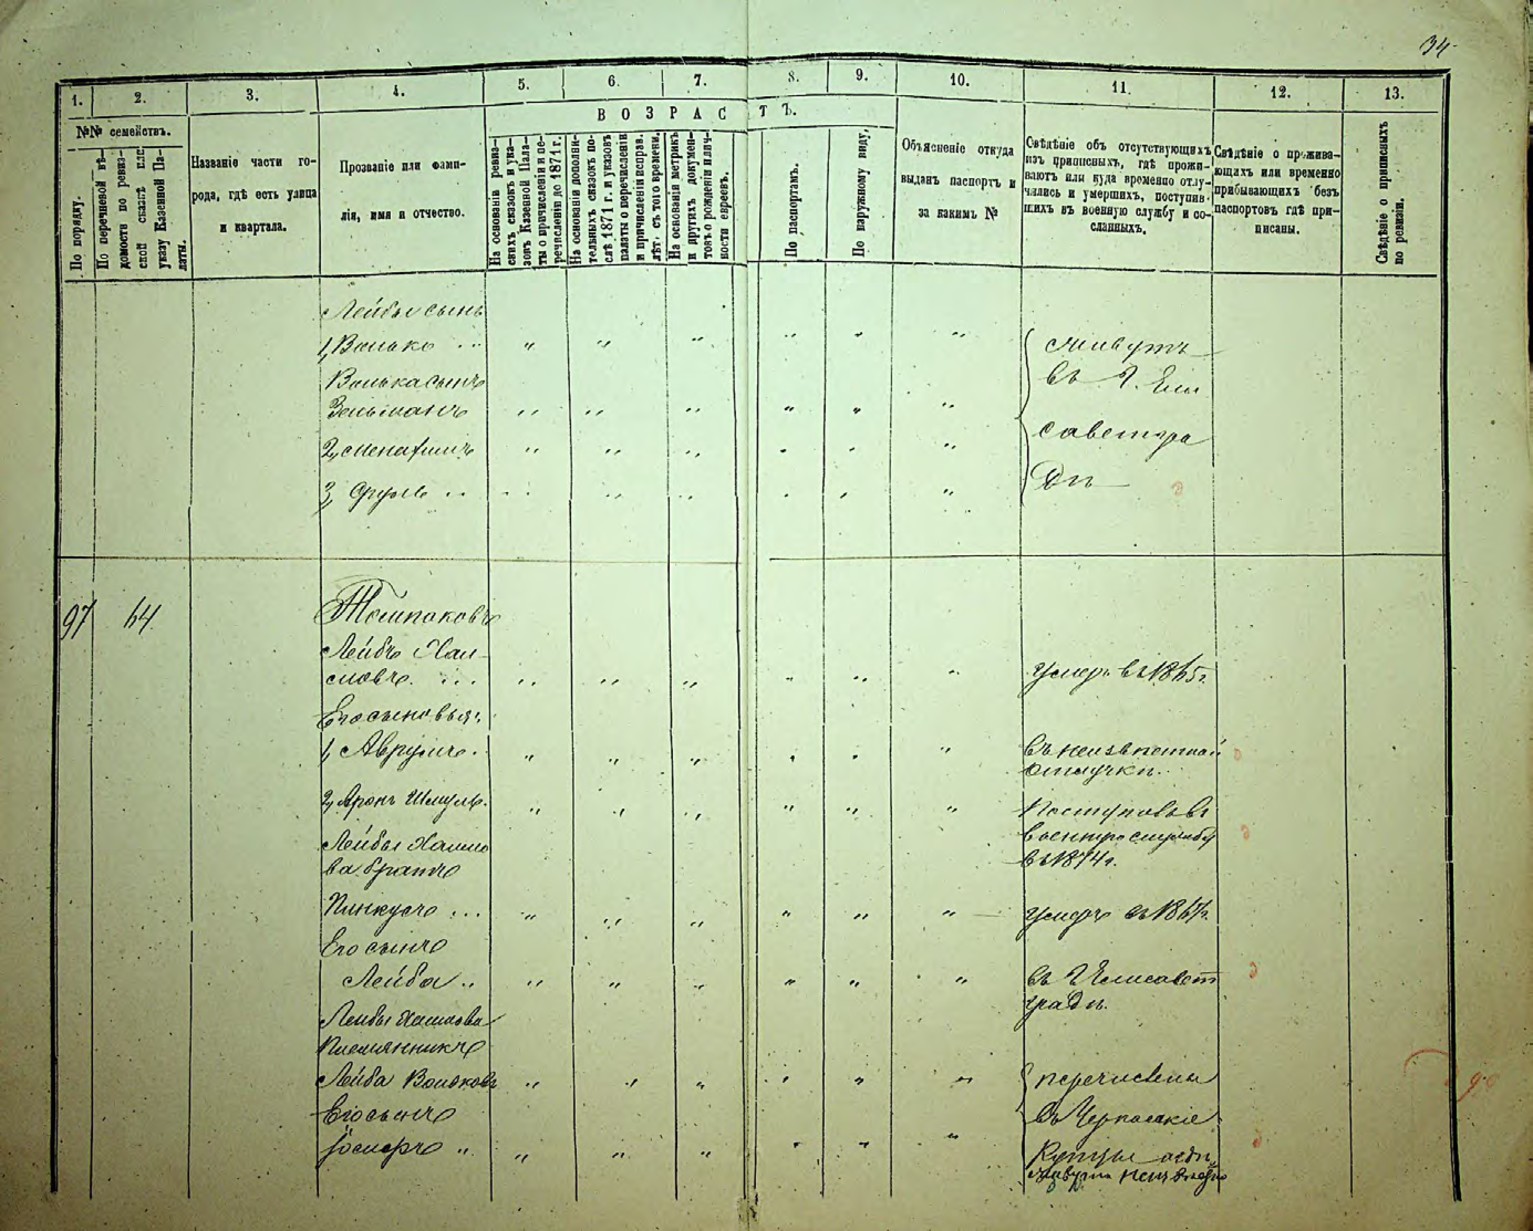 34
1.
2.
3.
4.
5.
6.
7.
8.
9.
10.
11.
12.
13.
№№ семействъ.
По порядку.
По перечневой вѣ-
домости по ревиз-
ской сказкѣ или
указу Казенной Па-
латы.
Названіе части го-
рода, гдѣ есть улица
и квартала.
Прозваніе или фами-
лія, имя и отчество.
ВОЗРАСТЪ.
На основаніи ревиз-
скихъ сказокъ и ука-
зовъ Казенной Пала-
ты о причисленіи и пе-
речисленіи до 1871 г.
На основаніи дополни-
тельныхъ сказокъ по-
слѣ 1871 г. и указовъ
палаты о перечисленіи
и причисленіи исправ.
лѣт. съ того времени.
На основаніи метрикъ
и другихъ докумен-
товъ о рожденіи и лич-
ности евреевъ.
По паспортамъ.
По наружному виду.
Объясненіе откуда
выданъ паспортъ и
за какимъ №
Свѣдѣніе объ отсутствующихъ
изъ приписныхъ, гдѣ прожи-
ваютъ или куда временно отлу-
чились и умершихъ, поступив-
шихъ въ военную службу и со-
сланныхъ.
Свѣдѣніе о прожива-
ющихъ или временно
прибывающихъ безъ
паспортовъ гдѣ при-
писаны.
Свѣдѣніе о приписныхъ
по ревизіи.
Лейбы сынъ
1, Волько " " " " " " живутъ
Волька сынъ въ г. Ели
Зельманъ " " " " " "
2, Менашъ " " " " " " саветгра
3, Сруль " " " " " " дѣ
97 64
Толпаковъ
Лейбъ Хаи
мовъ " " " " " " умеръ въ 1865 г.
Его сыновья:
1, Аврумъ " " " " " " въ неизвѣстной
отлучкѣ.
2, Аронъ Шмуль " " " " " " Поступилъ въ
военную службу
въ 1874 г.
Лейбы Хаимо
ва братъ
Пинкусъ " " " " " " умеръ въ 1867 г.
Его сынъ
Лейба " " " " " " въ г. Елисавет
градѣ.
Лейбы Хаимова
Племянникъ
Лейба Вольковъ " " " " " " перечислены
Его сынъ въ Черкаскіе
Іосифъ " " " " " " Купцы
живутъ неизвѣстно